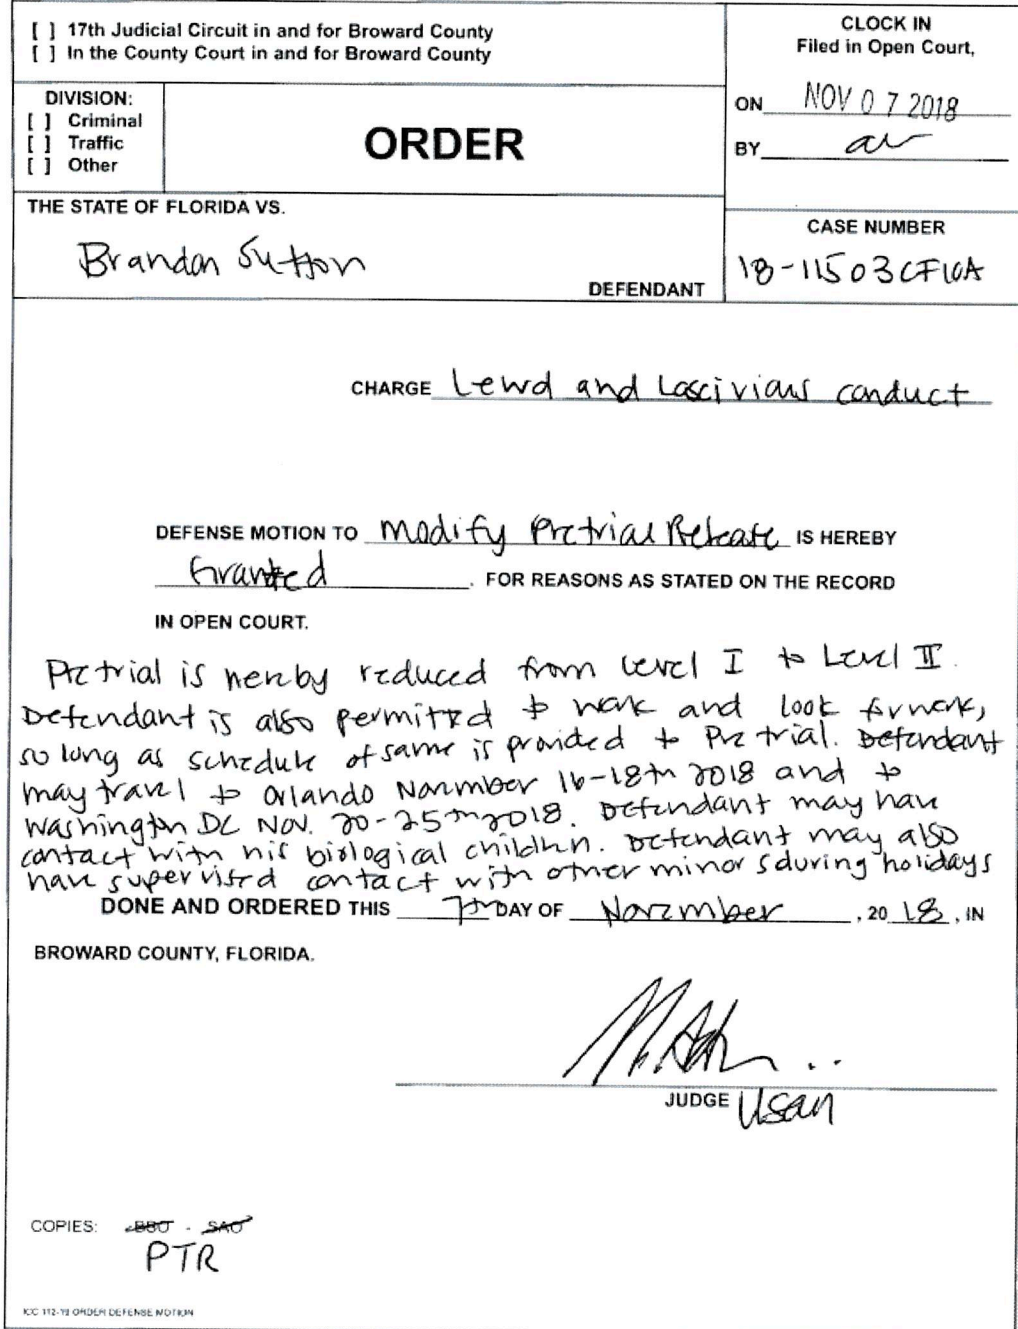 [ ] 17th Judicial Circuit in and for Broward County
[ ] In the County Court in and for Broward County
CLOCK IN
Filed in Open Court,
ON NOV 07 2018
BY
DIVISION:
[ ] Criminal
[ ] Traffic
[ ] Other
ORDER
THE STATE OF FLORIDA VS.
Brandon Sutton
DEFENDANT
CASE NUMBER
18-11503CF10A
CHARGE Lewd and Lascivious conduct
DEFENSE MOTION TO Modify Pretrial Release IS HEREBY
Granted. FOR REASONS AS STATED ON THE RECORD
IN OPEN COURT.
Pretrial is hereby reduced from level I to Level II.
Defendant is also permitted to work and look for work,
so long as schedule of same is provided to Pretrial. Defendant
may travel to Orlando November 16-18th 2018 and to
Washington DC Nov. 20-25th 2018. Defendant may have
contact with his biological children. Defendant may also
have supervised contact with other minors during holidays
DONE AND ORDERED THIS 7th DAY OF November, 20 18, IN
BROWARD COUNTY, FLORIDA.
JUDGE Usan
COPIES: BBO - SAO
PTR
ICC 112-19 ORDER DEFENSE MOTION